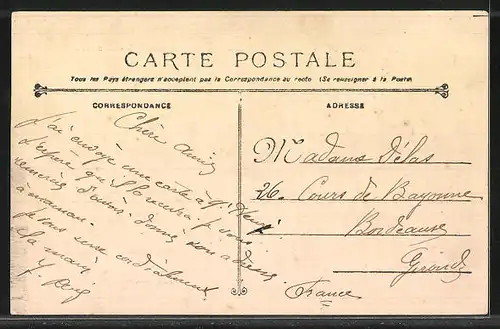 CARTE POSTALE
Tous les Pays étrangers n'acceptent pas la Correspondance au recto (Se renseigner à la Poste)
CORRESPONDANCE
Chère amie
J'ai envoyé une carte à Mr Henri
J'espère qu'il la recevra je vous
remercie d'avoir donné son adresse
à maman.
je vous serre cordialement
la main
ADRESSE
Madame Délas
26 Cours de Bayonne
Bordeaux
Gironde
France